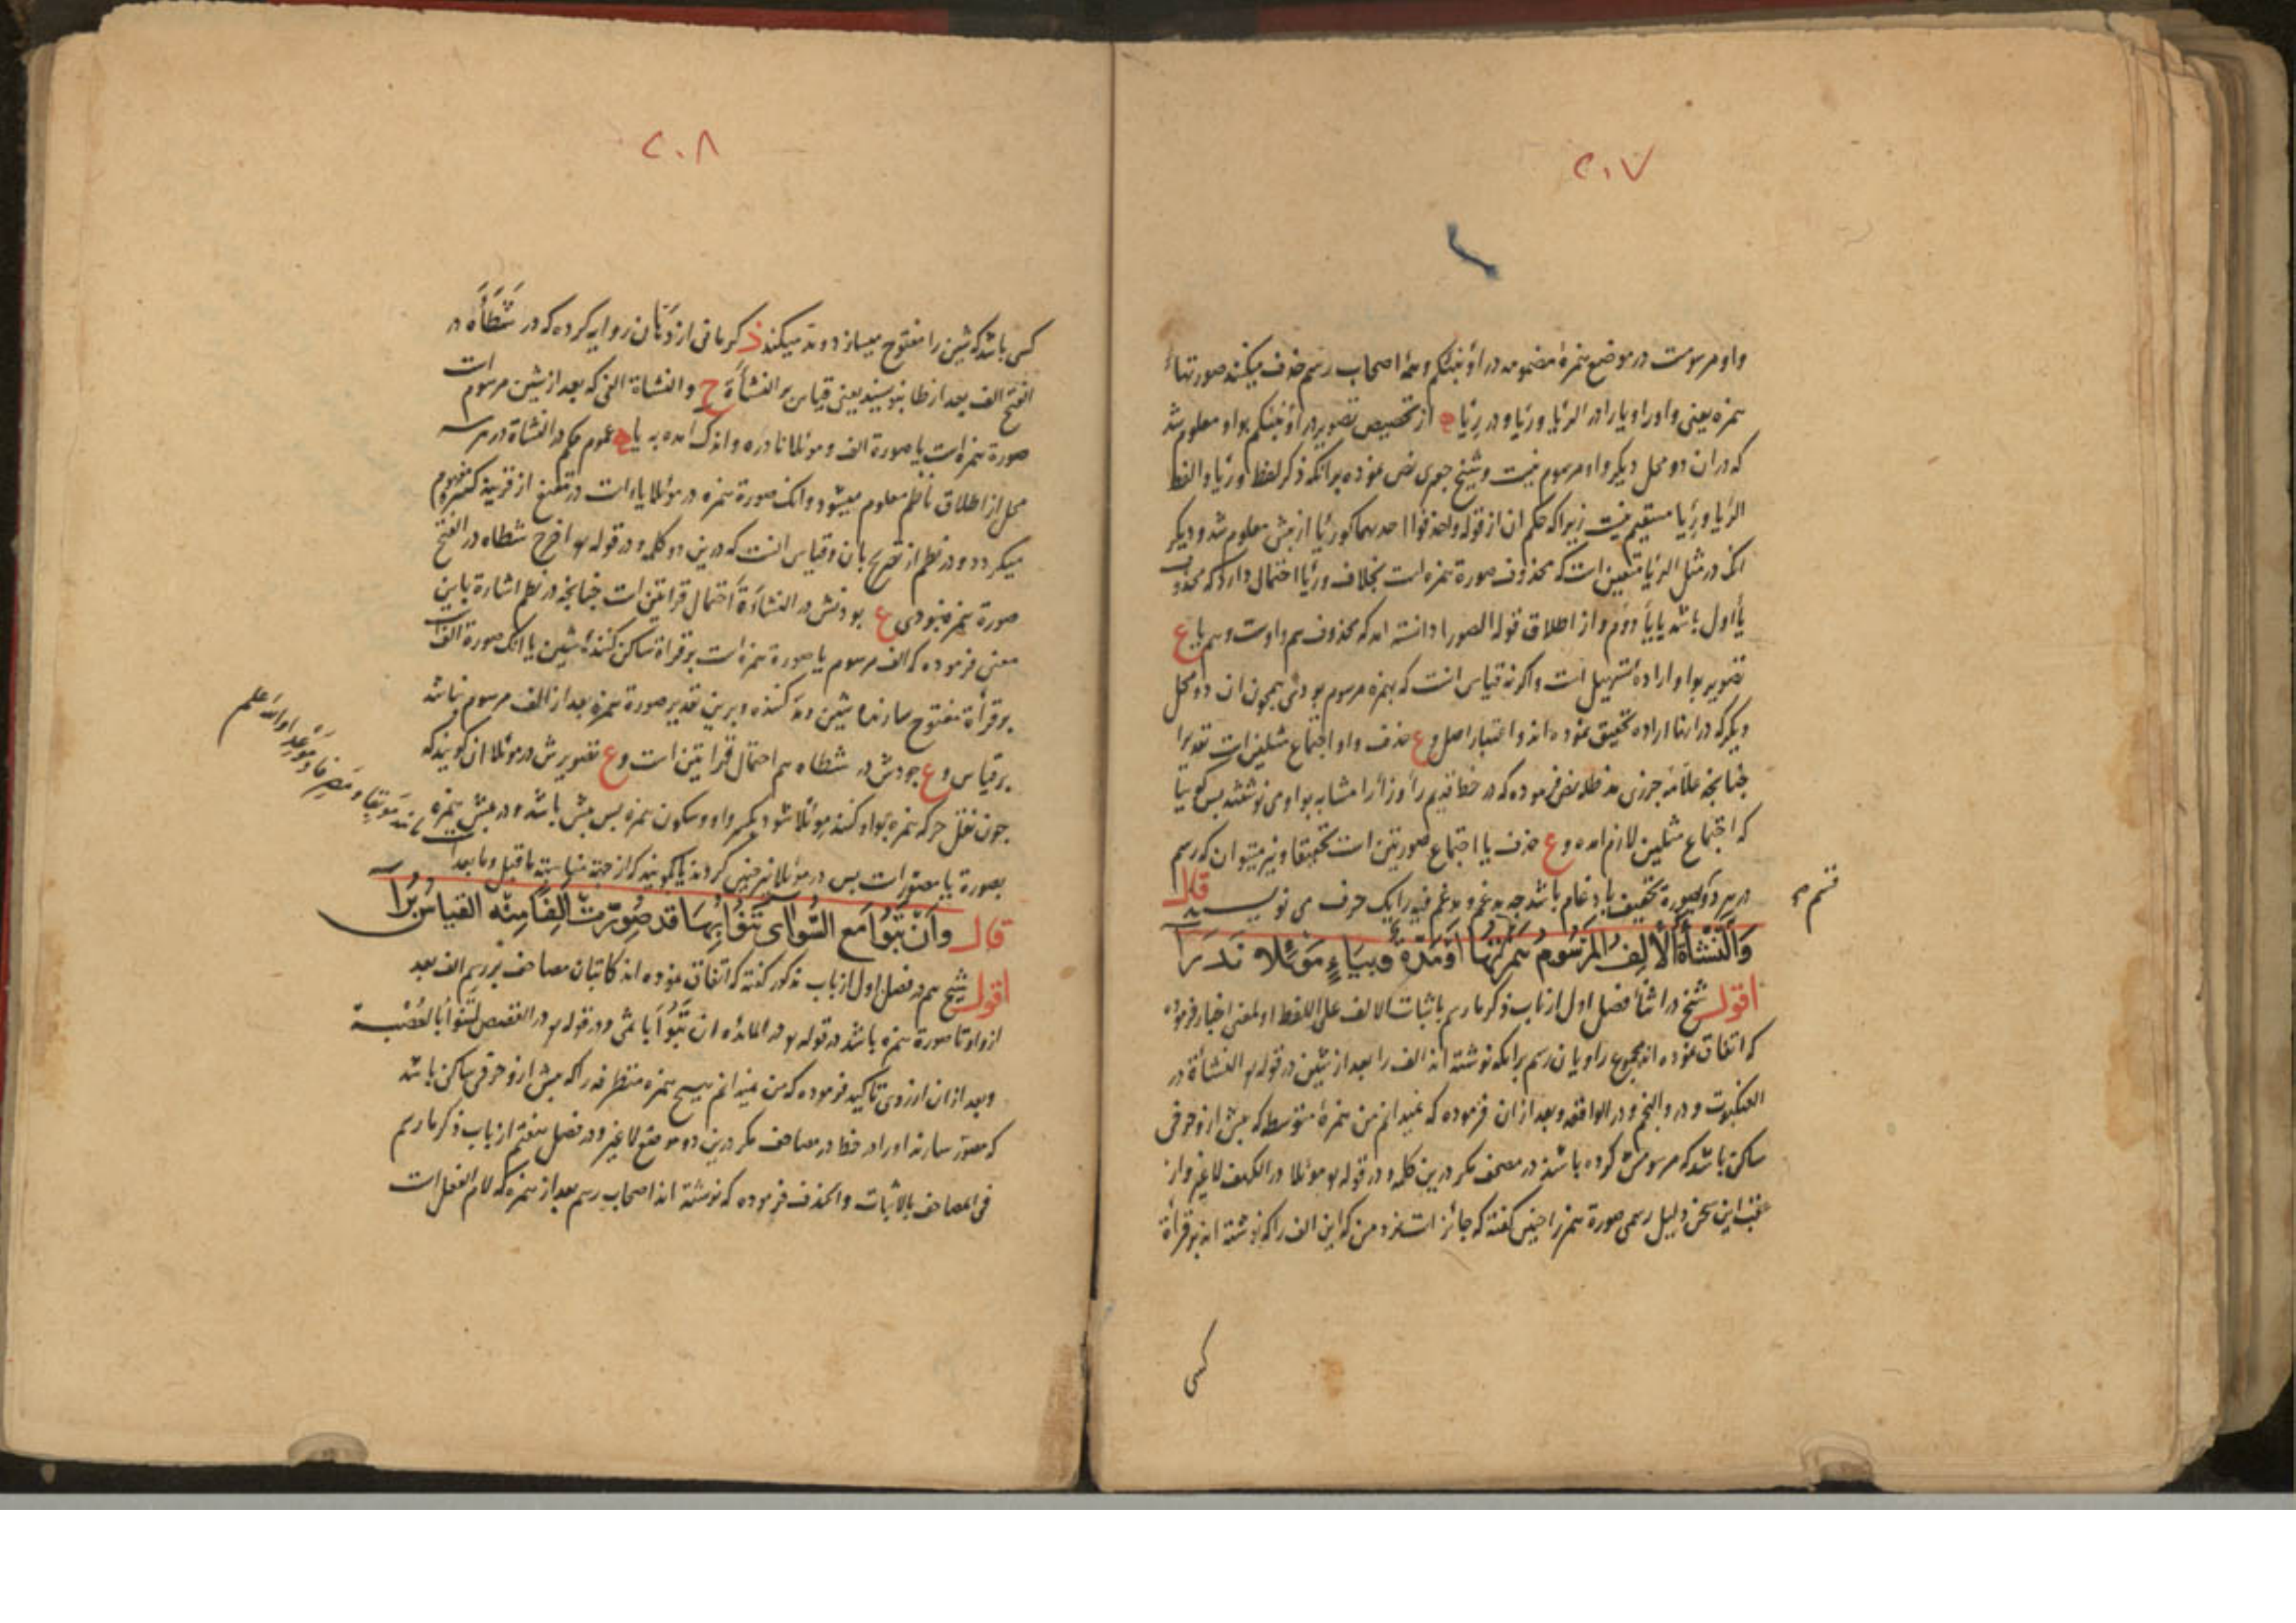 ٢٠٧
واو مرسومست در موضع همزهٔ مضمومه در اؤنبئکم و همهٔ اصحاب رسم حذف میکنند صورتهاء
همزه یعنی واو را و یا را در الرؤیا و رؤیا و در رئیا از تخصیص تصویر در اؤنبئکم بواو معلوم شد
که در ان دو محل دیکر واو مرسوم نیست و شیخ نص نموده برانکه ذکر لفظ و رئیا و الفظ
الرؤیا و رئیا مستقیم نیست زیرا که حکم ان از قوله واحذفوا احدیهما کورئیا از پیش معلوم شد و دیکر
انک در مثل الرؤیا متعین است که محذوف صورة همزه است بخلاف و رئیا احتمال دارد که محذوف
یاٴ اول باشد یا یاٴ دوم و از اطلاق قوله الصورا دانسته امد که محذوف هم واوست و هم یا ع
تصویر بواو ارادهٔ تسهیل است و اکر نه قیاس انست که همزه مرسوم بودی همچون ان دو محل
دیکر که در انها اراده تحقیق نموده اند و اعتبار اصل و ع حذف واو اجتماع مثلین است تقدیرا
چنانچه علامه جزری مدظله نص فرموده که در خط قدیم را و زا را مشابه بواو می نوشتند پس کوییا
که اجتماع مثلین لازم امده و ع حذف یا اجتماع صورتین است تحقیقا و نیز میتوان که رسم
در هر دو بصورة تخفیف با ادغام باشد چه مدغم و مدغم فیه را یک حرف می نویسند قال
وَالنَّشْأَةُ الْأَلِفُ الْمَرْسُومُ هَمْزَتُهَا اَوْ مَدَّةٌ وَبِيَاءٍ مَوْئِلًا نَدَرَا
اقول شیخ در اثنأ فصل اول از باب ذکر ما رسم باثبات الالف علی اللفظ او لمعنی اخبار فرموده
که اتفاق نموده اند مجموع راویان رسم برانکه نوشته اند الف را بعد از شین در قوله تع النشأة در
العنکبوت و در والنجم و در الواقعه و بعد از ان فرموده که نمیدانم من همزهٔ متوسطه که پیش ازو حرفی
ساکن باشد که مرسومش کرده باشند در مصحف مکر درین کلمه و در قوله تع موئلا در الکهف لا غیر و از
عقب این سخن دلیل رسمی صورة همزه را چنین کفته که جائز است نزد من که این الف را که نوشته اند بر قرأة
کسی
٢٠٨
کسی باشد که شین را مفتوح میسازد و مد میکند ذ کرمانی از روایه کرده که در شَطَأَه در
الفتح الف بعد از طا بنویسند یعنی قیاس بر النشأة ح و النشاة الفی که بعد از شین مرسوم است
صورة همزه است یا صورة الف و موئلا نادره و اندک امده به یا عموم حکم در النشاة در هر سه
محل از اطلاق ناظم معلوم میشود و انک صورة همزه در موئلا یاء است در مقنع از قرینه کسره مفهوم
میکردد و در نظم از تصریح بان و قیاس انست که درین دو کلمه و در قوله تع اخرج شطاه در الفتح
صورة همزه نبودی ع بودنش در النشأة احتمال قرائتین است چنانچه در نظم اشارة باین
معنی فرموده که الف مرسوم یا صورة همزه است بر قراة ساکن کنندهٔ شین یا انک صورة الف است
بر قرأة مفتوح سازنده شین و مد کننده و برین تقدیر صورة همزه بعد از الف مرسوم نباشد
بر قیاس و ع بودنش در شطاه هم احتمال قرائتین است و ع تصویرش در موئلا ان کویند که
چون نقل حرکه همزه بواو کنند موئلا شود بکسر واو و سکون همزه پس پیش باشد و در پیش همزه
بصورة یا مصور است پس در موئلا نیز چنین کردند یا کویند که از جهة مناسبة ما قبل و ما بعد است
مانند مَوبِقا و مَصرِفا و مَوعِدا والله علم
قال وَاَنْ تَبُوْاَ مَعَ السُّوْاٰى تَنُوْاُ بِهَا قد صُوِّرَتْ اَلِفًا مِنْهُ الْقِيَاسُ بَرَا
اقول شیخ هم در فصل اول از باب مذکور کفته که اتفاق نموده اند کاتبان مصاحف بر رسم الف بعد
از واو تا صورة همزه باشد در قوله تع در المائده ان تَبُوْاَ باثمی و در قوله تع در القصص لَتَنُوْاُ بالعُصْبَة
و بعد ازان از روی تاکید فرموده که من نمیدانم هیچ همزه متطرفه را که پیش ازو حرفی ساکن باشد
که مصور سازند او را در خط در مصاحف مکر درین دو موضع لا غیر و در فصل هفتم از باب ذکر ما رسم
فی المصاحف بالاثبات و الحذف فرموده که نوشته اند اصحاب رسم بعد از همزه که لام الفعل است